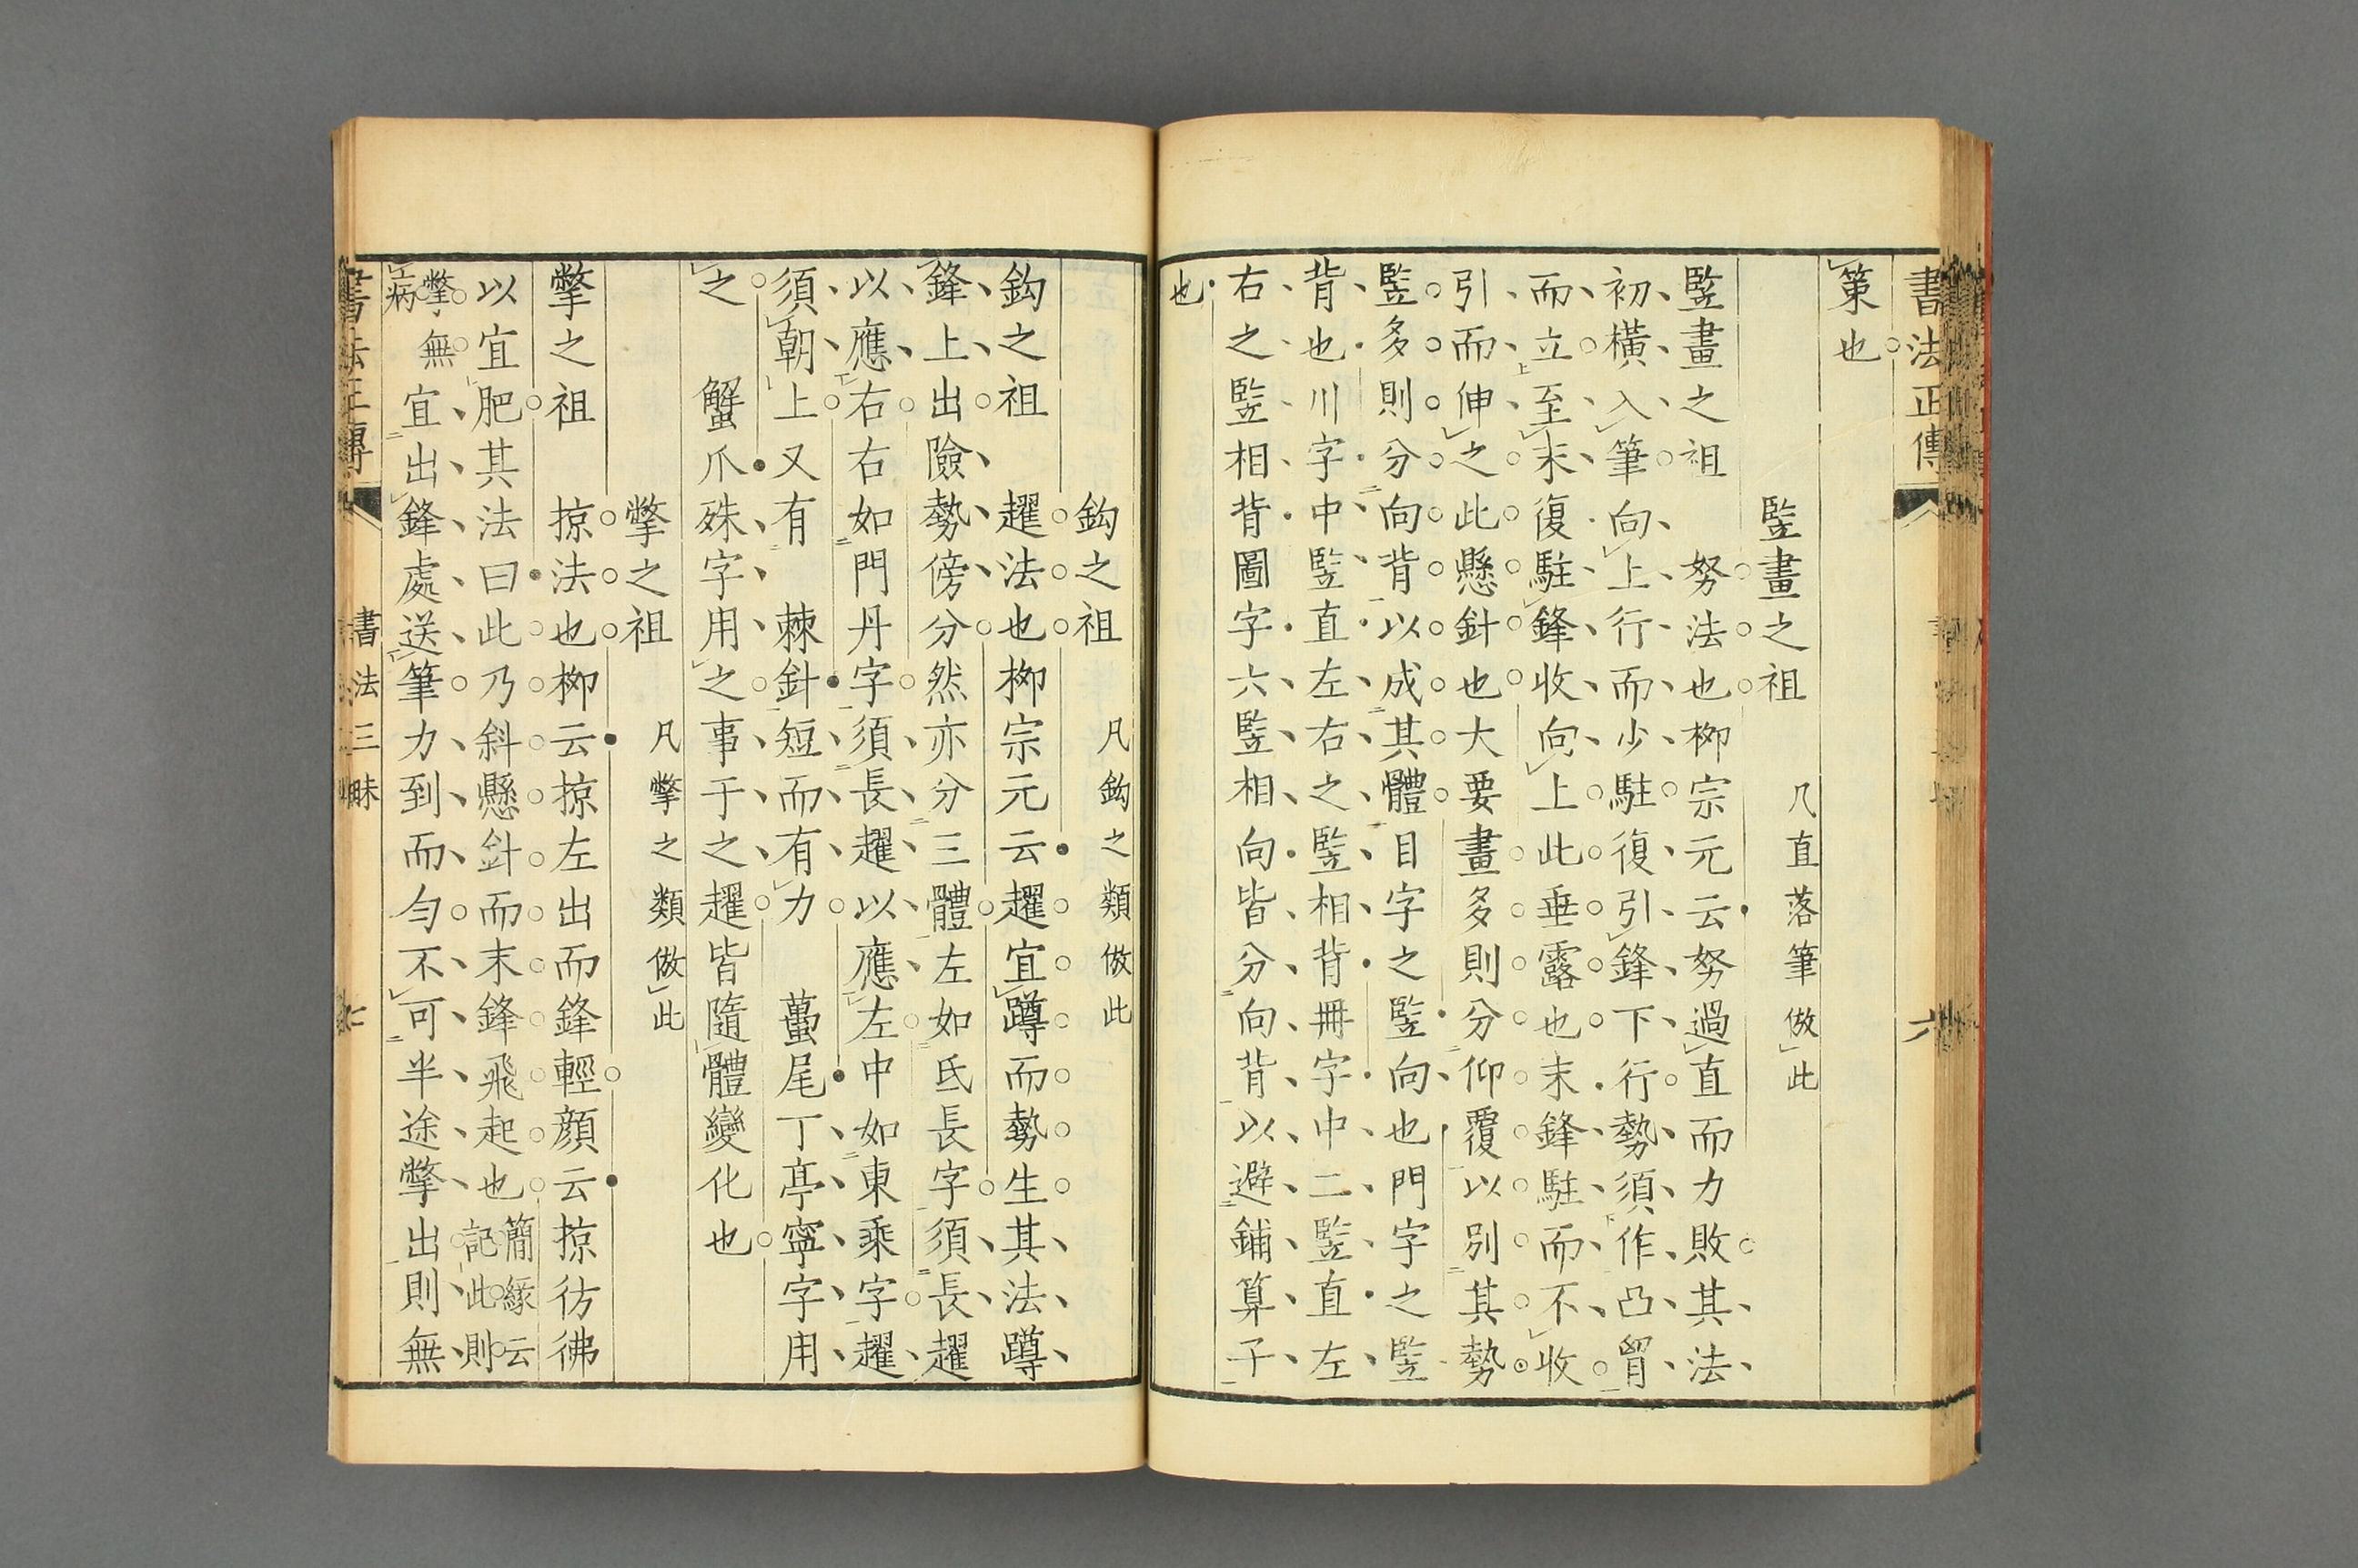 書法正傳 六
策也
豎畫之祖 凡直落筆倣此
豎畫之祖 努法也柳宗元云努過直而力敗其法
初橫入筆向上行而少駐復引鋒下行勢須作凸胷
而立至末復駐鋒收向上此垂露也末鋒駐而不收
引而伸之此懸針也大要畫多則分仰覆以別其勢
豎多則分向背以成其體目字之豎向也門字之豎
背也川字中豎直左右之豎相背冊字中二豎直左
右之豎相背圖字六豎相向皆分向背以避鋪算子
也
鈎之祖 凡鈎之類倣此
鈎之祖 趯法也柳宗元云趯宜蹲而勢生其法蹲
鋒上出險勢傍分然亦分三體左如氏長字須長趯
以應右右如門丹字須長趯以應左中如東乘字趯
須朝上又有 棘針短而有力 蠆尾丁亭寧字用
之 蟹爪殊字用之事于之趯皆隨體變化也
撆之祖 凡撆之類倣此
撆之祖 掠法也柳云掠左出而鋒輕顏云掠彷彿
以宜肥其法曰此乃斜懸針而末鋒飛起也簡緣云記此則
撆無病宜出鋒處送筆力到而勻不可半途撆出則無
書法正傳 書法三昧 七